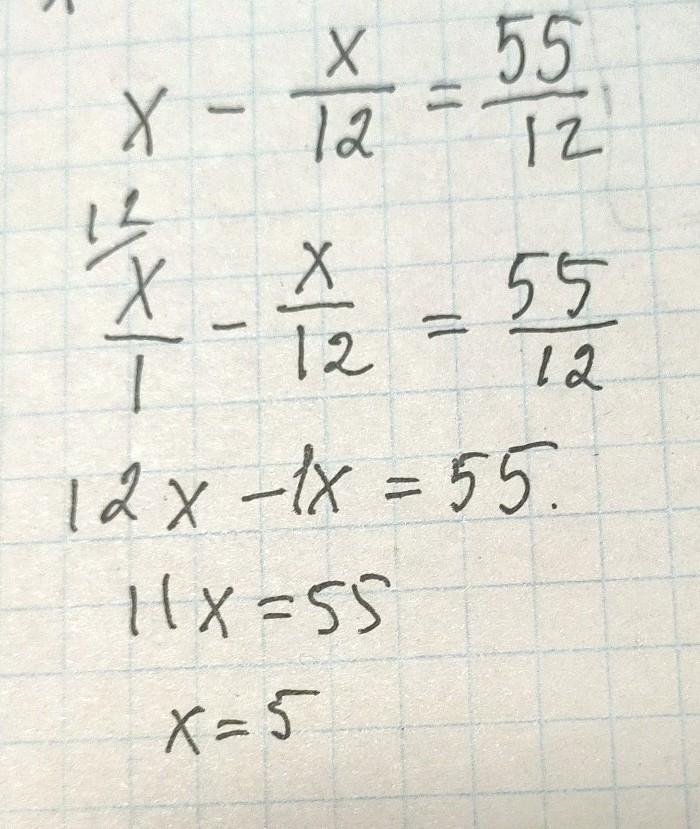 x - x/12 = 55/12
12/ x/1 - x/12 = 55/12
12x - 1x = 55.
11x = 55
x = 5